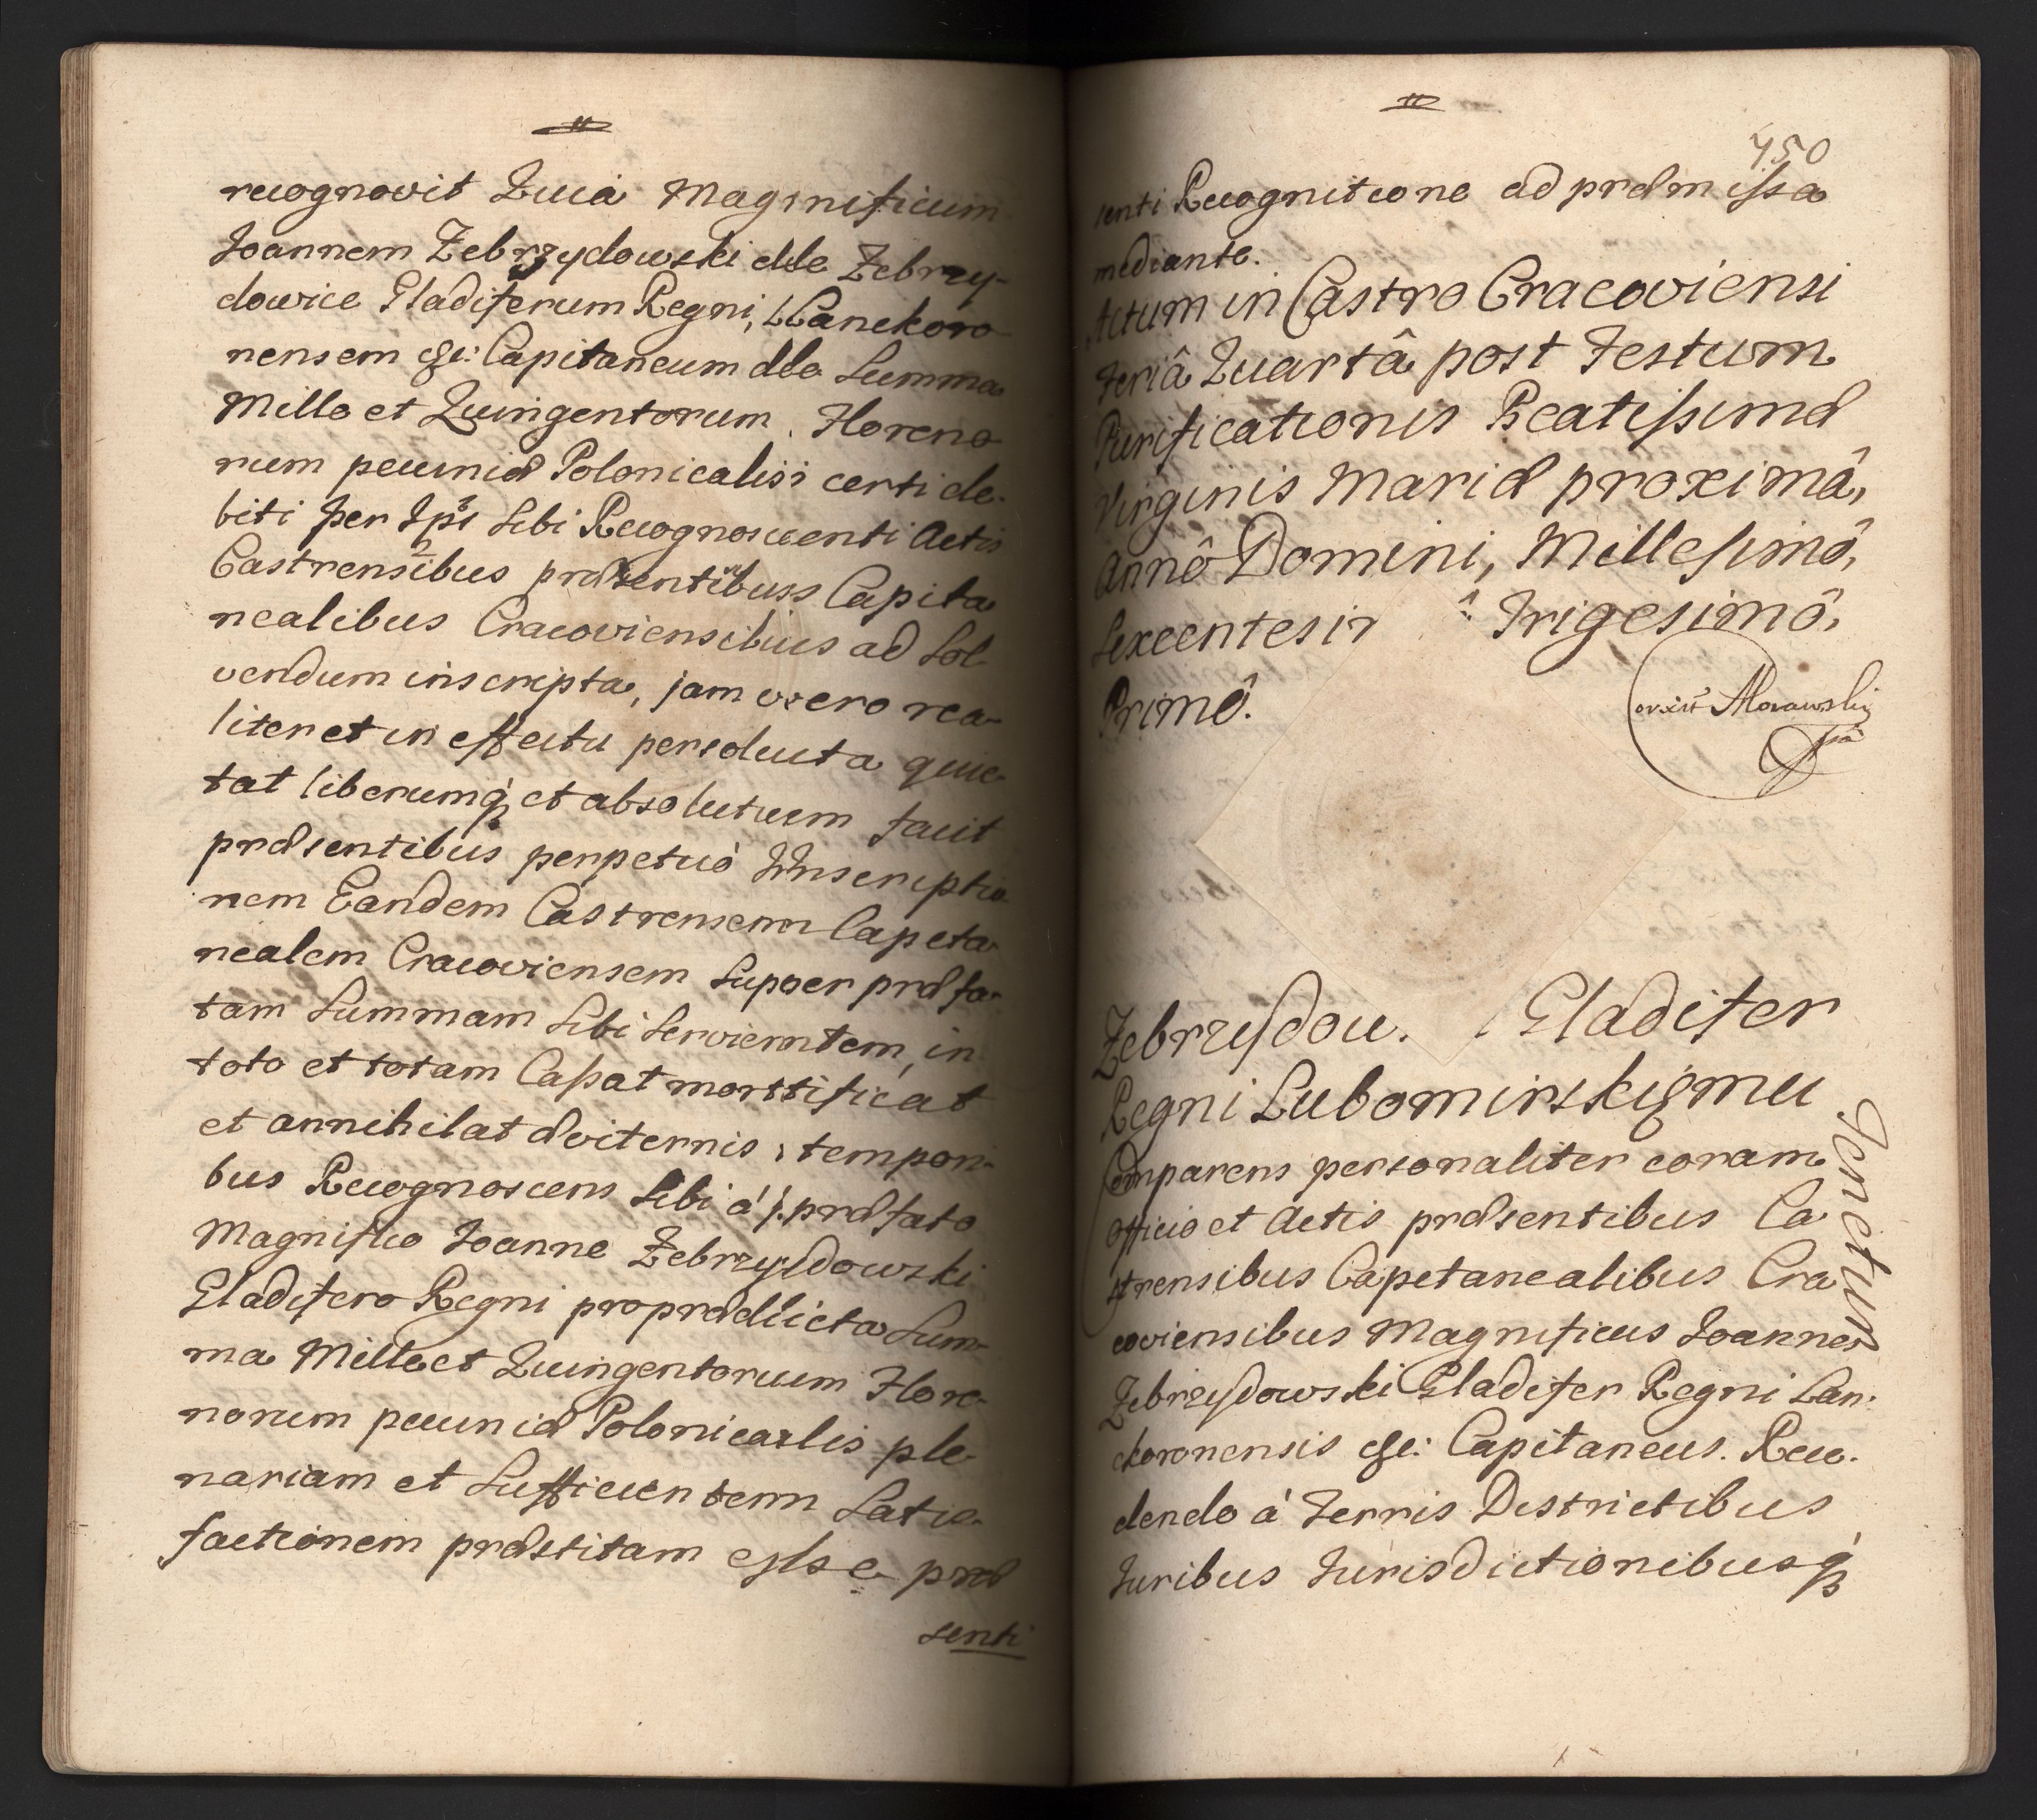 recognovit Quia Magnificum
Joannem Zebrzydowski de Zebrzy-
dowice Gladiferum Regni, LCanckoro
nensem &c: Capitaneum de Summa
Mille et Quingentorum Floreno
rum pecuniæ Polonicalis certi de-
biti per Ips Sibi Recognoscenti Actis
Castrensibus præsentibus Capita
nealibus Cracoviensibus ad Sol
vendum inscripta, jam vero rea-
liter et in effectu persoluta quie-
tat liberumq; et absolutum facit
præsentibus perpetuò Inscriptio
nem Eandem Castrensem Capita
nealem Cracoviensem Super præfa-
tam Summam Sibi Servientem, in
toto et totam Cassat mortificat
et annihilat æviternis tempori-
bus Recognoscens Sibi á præfato
Magnifico Joanne Zebrzydowski
Gladifero Regni pro prædicta Sum-
ma Mille et Quingentorum Flore-
norum pecuniæ Polonicalis ple-
nariam et Sufficientem Satis-
factionem præstitam esse præ
senti
450
senti Recognitione ad præmissa
mediante.
Actum in Castro Cracoviensi
Feriâ Quartâ post Festum
Purificationis Beatissimæ
Virginis Mariæ proximâ,
Annô Domini, Millesimô,
Sexcentesim Trigesimô,
Primô.
Morawski
Zebrzydow. Gladifer
Regni Lubomirski
Comparens personaliter coram
officio et Actis præsentibus Ca
strensibus Capitanealibus Cra
coviensibus Magnificus Joannes
Zebrzydowski Gladifer Regni Lan-
ckoronensis &c: Capitaneus. Rece-
dendo á Terris Districtibus
Juribus Jurisdictionibusq;